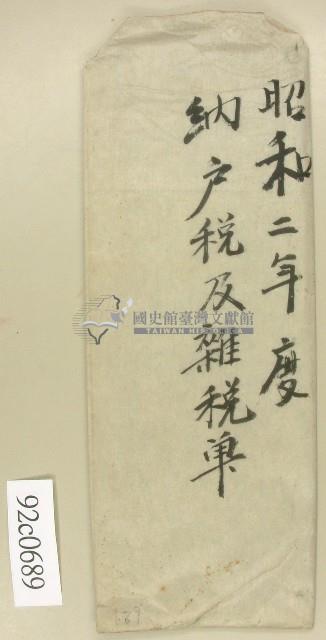 昭和二年度
納户税及雜税单
國史館臺灣文獻館
TAIWAN HISTORICA
92c0689
689